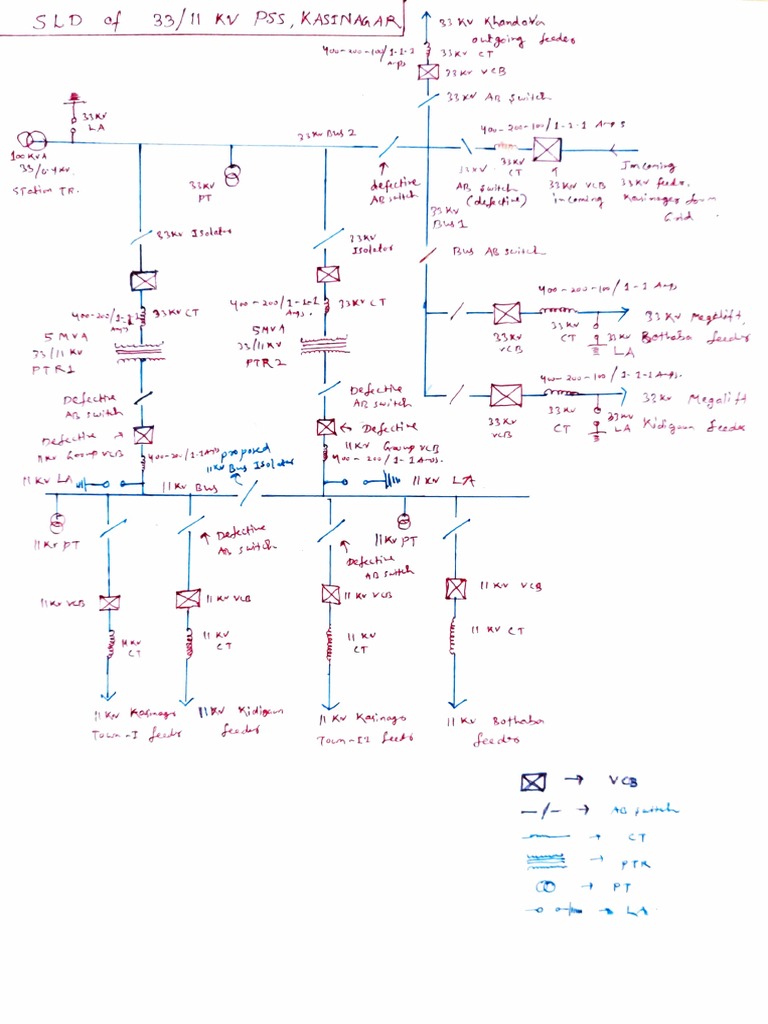 SLD of 33/11 KV PSS, KASINAGAR
33 KV Khandava
outgoing feeder
400-200-100/1-1-1
Amps
33 KV CT
33 KV VCB
33 KV AB Switch
33 KV
LA
100 KVA
33/0.4 KV
Station TR.
33 KV
PT
33 KV Bus 2
defective
AB switch
400-200-100/1-1-1 Amps
33 KV
CT
33 KV
AB Switch
(defective)
33 KV VCB
incoming
Incoming
33 KV feeder
Kasinagar from
Grid
33 KV
Bus 1
Bus AB switch
33 KV Isolator
33 KV
Isolator
400-200/1-1-1
Amps
33 KV CT
400-200/1-1-1
Amps.
33 KV CT
5 MVA
33/11 KV
PTR1
5 MVA
33/11 KV
PTR2
400-200-100/1-1 Amps
33 KV
VCB
33 KV
CT
33 KV
LA
33 KV Megalift
Bothaba feeder
400-200-100/1-1-1 Amps.
33 KV
VCB
33 KV
CT
33 KV
LA
33 KV Megalift
Kidigaon feeder
Defective
AB switch
Defective
AB switch
Defective
11 KV Group VCB
Defective
11 KV Group VCB
400-200/1-1 Amps
400-200/1-1 Amps.
proposed
11 KV Bus Isolator
11 KV LA
11 KV Bus
11 KV LA
11 KV PT
Defective
AB switch
11 KV PT
Defective
AB switch
11 KV VCB
11 KV VCB
11 KV VCB
11 KV VCB
11 KV
CT
11 KV
CT
11 KV
CT
11 KV CT
11 KV Kasinagr
Town-I feeder
11 KV Kidigaon
feeder
11 KV Kasinagr
Town-II feeder
11 KV Bothaba
feeder
→ VCB
→ AB switch
→ CT
→ PTR
→ PT
→ LA